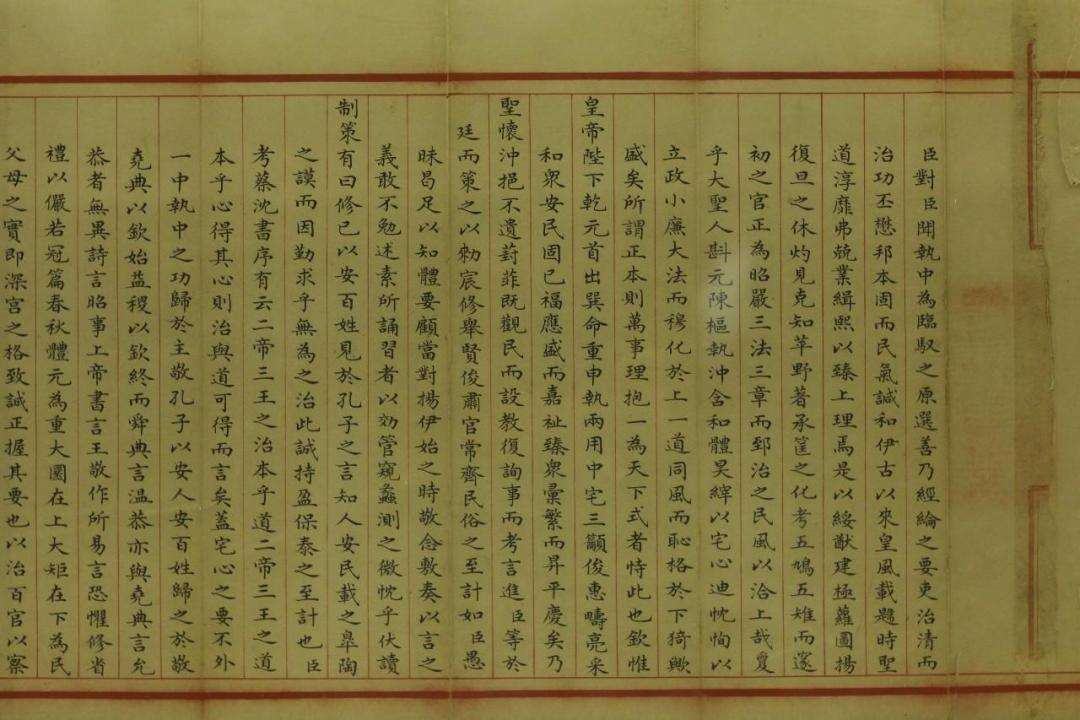 臣對臣聞執中為臨馭之原選善乃經綸之要吏治清而
治功丕懋邦本固而民氣諴和伊古以來皇風載題時聖
道淳靡弗兢業緝熙以臻上理焉是以綏猷建極蘿圖揚
復旦之休灼見克知苹野著承筐之化考五鳩五雉而邃
初之官正為昭嚴三法三章而郅治之民風以洽上哉夐
乎大聖人斟元陳樞執沖含和體昊縡以宅心迪忱恂以
立政小廉大法而穆化於上一道同風而恥格於下猗歟
盛矣所謂正本則萬事理抱一為天下式者恃此也欽惟
皇帝陛下乾元首出巽命重申執兩用中宅三籲俊惠疇亮采
和眾安民固已福應盛而嘉祉臻眾彙繁而昇平慶矣乃
聖懷沖挹不遺葑菲既觀民而設教復詢事而考言進臣等於
廷而策之以勑宸修舉賢俊肅官常齊民俗之至計如臣愚
昧曷足以知體要顧當對揚伊始之時敬念敷奏以言之
義敢不勉述素所誦習者以効管窺蠡測之微忱乎伏讀
制策有曰修己以安百姓見於孔子之言知人安民載之皐陶
之謨而因勤求乎無為之治此誠持盈保泰之至計也臣
考蔡沈書序有云二帝三王之治本乎道二帝三王之道
本乎心得其心則治與道可得而言矣蓋宅心之要不外
一中執中之功歸於主敬孔子以安人安百姓歸之於敬
堯典以欽始益稷以欽終而舜典言溫恭亦與堯典言允
恭者無異詩言昭事上帝書言王敬作所易言恐懼修省
禮以儼若冠篇春秋體元為重大圜在上大矩在下為民
父母之實即深宮之格致誠正握其要也以治百官以察